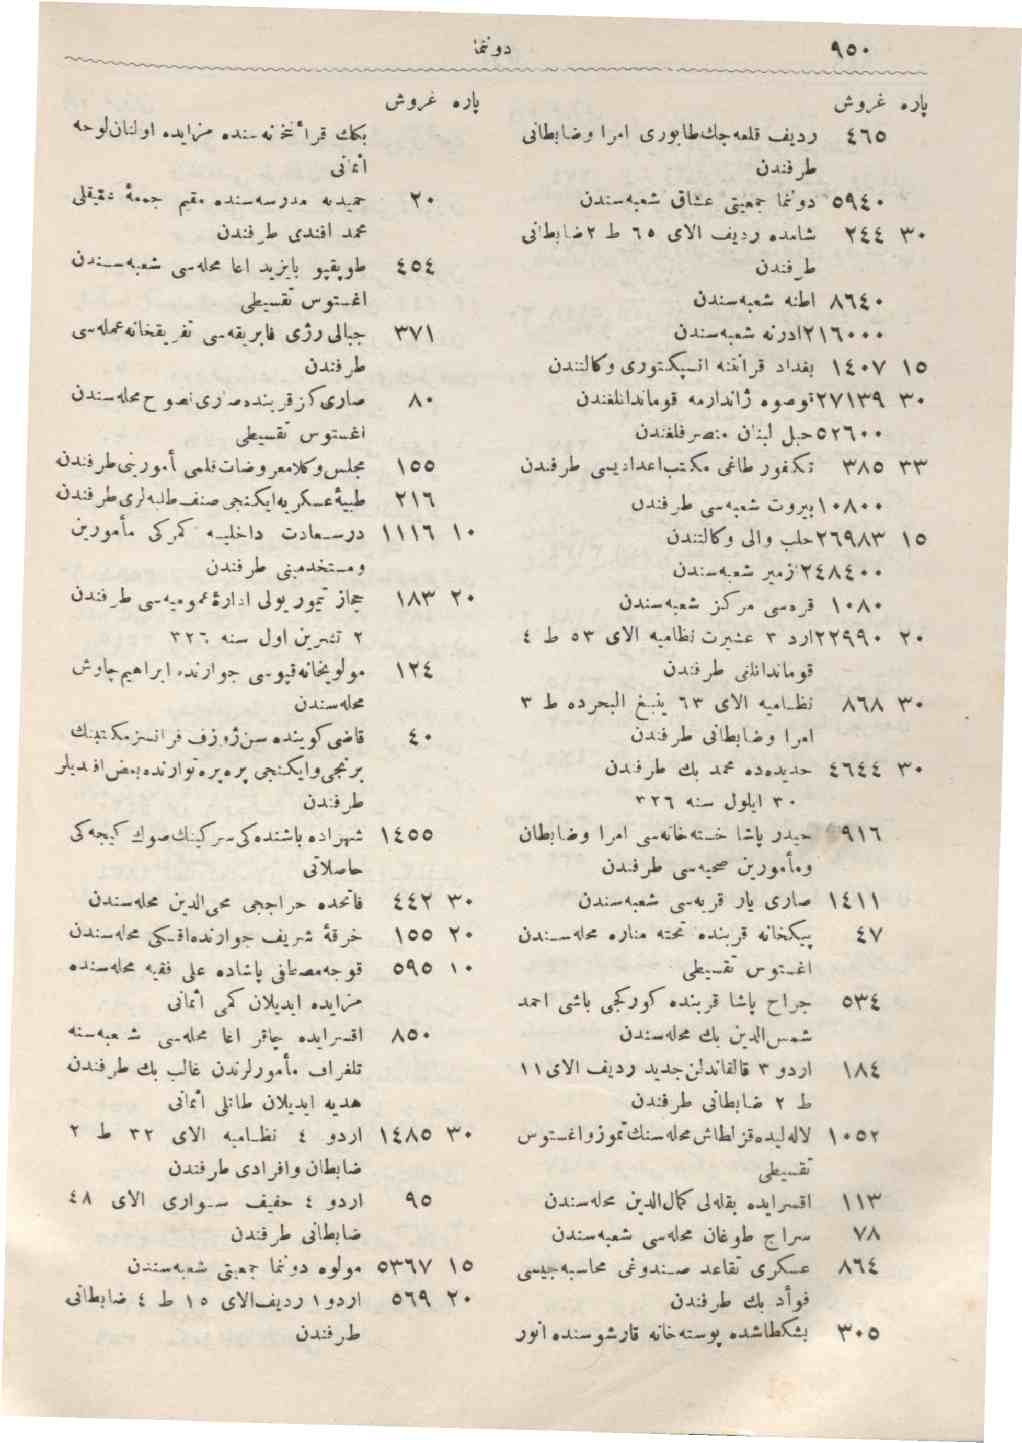 ٩٥٠
دوننما
پاره غروش
٤٦٥ رديف قلعه‌جك طابورى امرا وضابطانى
طرفندن
٥٩٤٠ دوننما جمعيتى عشاق شعبه‌سندن
٣٠ ٢٤٤ شامده رديف الاى ٦٥ ط ٢ ضابطانى
طرفندن
٨٦٤٠ اطنه شعبه‌سندن
٢١٦٠٠٠ ادرنه شعبه‌سندن
١٥ ١٤٠٧ بغداد قرانتنه انسپكتورى وكالتندن
٣٠ ٢٧١٣٩ قوصوه ژاندارمه قوماندانلغندن
٥٢٦٠٠ جبل لبنان متصرفلغندن
٣٣ ٣٨٥ تكفور طاغى مكتب اعداديسى طرفندن
١٠٨٠٠ بيروت شعبه‌سى طرفندن
١٥ ٢٦٩٨٣ حلب والى وكالتندن
٢٤٨٤٠٠ ازمير شعبه‌سندن
١٠٨٠ قره‌سى مركز شعبه‌سندن
٢٠ ٢٢٩٩٠ ارد ٣ عشيرت نظاميه الاى ٥٣ ط ٤
قوماندانلغى طرفندن
٣٠ ٨٦٨ نظاميه الاى ٦٣ ينبغ البحرده ط ٣
امرا وضابطانى طرفندن
٣٠ ٤٦٤٤ حديده‌ده محمد بك طرفندن
٣٠ ايلول سنه ٣٢٦
٩١٦ حيدر پاشا خسته‌خانه‌سى امرا وضابطان
ومأمورين صحيه‌سى طرفندن
١٤١١ صارى يار قريه‌سى شعبه‌سندن
٤٧ پيكخانه قربنده تخته مناره محله‌سندن
اغستوس تقسيطى
٥٣٤ جراح پاشا قربنده كوركجى باشى احمد
شمس‌الدين بك محله‌سندن
١٨٤ اردو ٣ قالقاندلن جديد رديف الاى ١١
ط ٢ ضابطانى طرفندن
١٠٥٢ لاله‌ليده قزلطاش محله‌سنك تموز واغستوس
تقسيطى
١١٣ اقسرايده بقله‌لى كمال‌الدين محله‌سندن
٧٨ سراج طوغان محله‌سى شعبه‌سندن
٨٦٤ عسكرى تقاعد صندوغى محاسبه‌جيسى
فوأد بك طرفندن
٣٠٥ بشكطاشده پوسته‌خانه قارشوسنده انور
پاره غروش
بكك قرائتخانه‌سنده مزايده اولنان لوحه
اثمانى
٢٠ حميديه مدرسه‌سنده مقيم جمعه عقيقلى
محمد افندى طرفندن
٤٥٤ طوپقپو بايزيد اغا محله‌سى شعبه‌سندن
اغستوس تقسيطى
٣٧١ جبالى رژى فابريقه‌سى تفريقخانه عمله‌سى
طرفندن
٨٠ صارى كز قربنده صارى نصوح محله‌سندن
اغستوس تقسيطى
١٥٥ مجلس وكلا معروضات قلمى مأمورينى طرفندن
٢١٦ طبيه عسكريه ايكنجى صنف طلبه‌لرى طرفندن
١٠ ١١١٦ درسعادت داخليه كمركى مأمورين
ومستخدمينى طرفندن
٢٠ ١٨٣ حجاز تيمور يولى اداره عموميه‌سى طرفندن
٢ تشرين اول سنه ٣٢٦
١٢٤ مولويخانه‌قپوسى جوارنده ابراهيم چاوش
محله‌سندن
٤٠ قاضى كوينده سن ژوزف فرانسز مكتبنك
برنجى وايكنجى پره‌پره‌توارنده بعض افنديلر
طرفندن
١٤٥٥ شهزاده باشنده‌كى سركينك صوك كيجه‌كى
حاصلاتى
٣٠ ٤٤٢ فاتحده حراججى محى‌الدين محله‌سندن
٢٠ ١٥٥ خرقه شريف جوارنده اقسكى محله‌سندن
١٠ ٥٩٥ قوجه‌مصطفى پاشاده على فقيه محله‌سنده
مزايده ايديلان كمى اثمانى
٨٥٠ اقسرايده چاقر اغا محله‌سى شعبه‌سنه
تلغراف مأمورلرندن غالب بك طرفندن
هديه ايديلان طاتلى اثمانى
٣٠ ١٤٨٥ اردو ٤ نظاميه الاى ٣٢ ط ٢
ضابطان وافرادى طرفندن
٩٥ اردو ٤ خفيف سوارى الاى ٤٨
ضابطانى طرفندن
١٥ ٥٣٦٧ مولوه دوننما جمعيتى شعبه‌سندن
٢٠ ٥٦٩ اردو ١ رديف الاى ١٥ ط ٤ ضابطانى
طرفندن